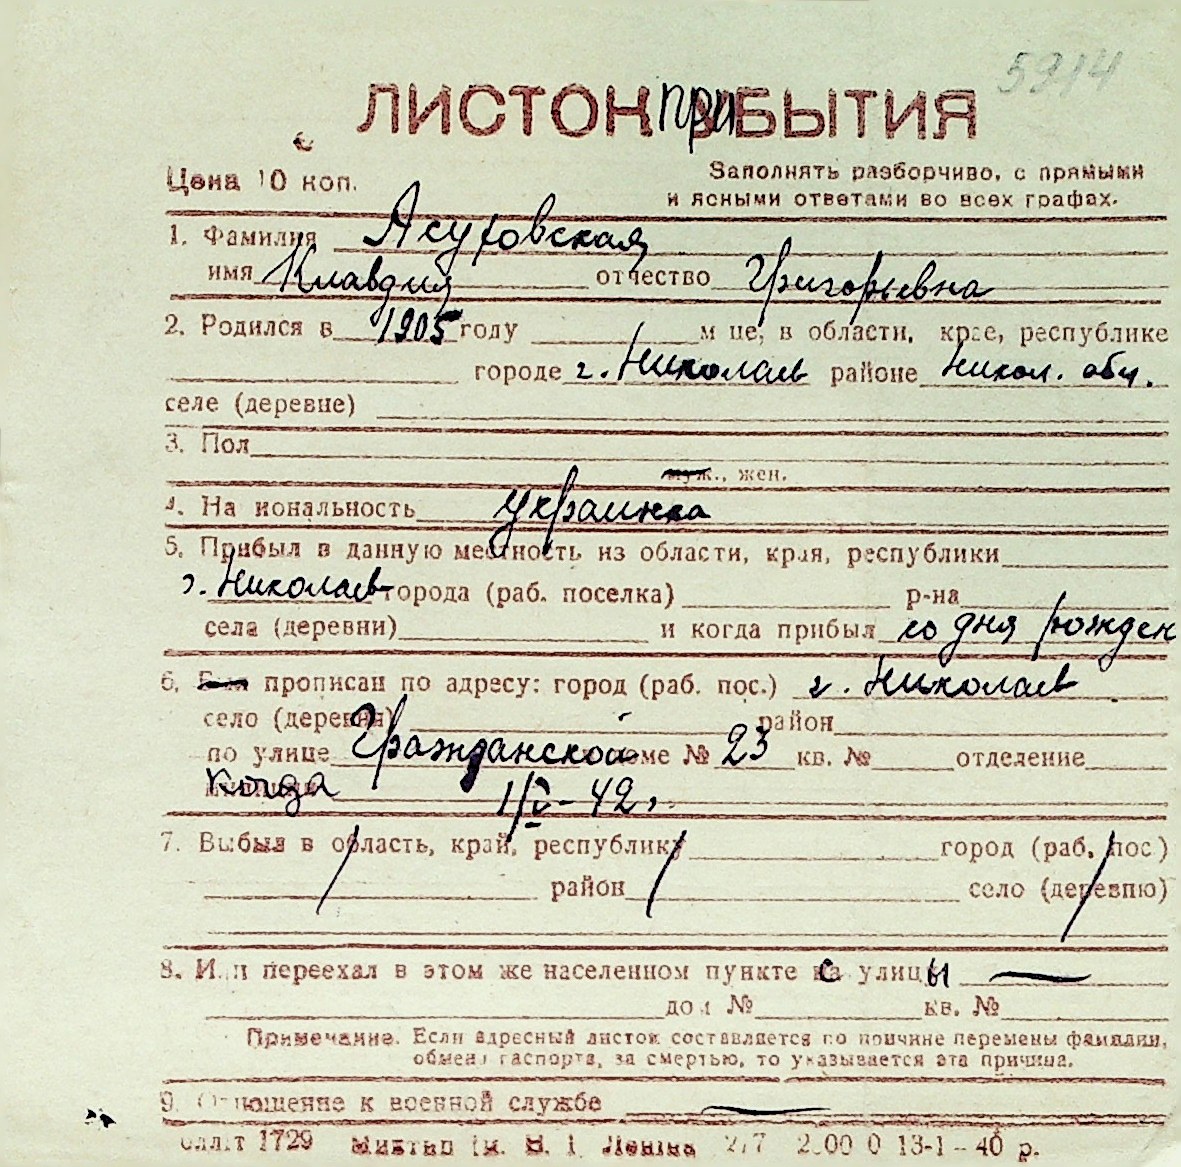 5914
ЛИСТОК ПРИБЫТИЯ
Цена 10 коп.
Заполнять разборчиво, с прямыми
и ясными ответами во всех графах.
1. Фамилия Ясуровская
имя Клавдия отчество Григорьевна
2. Родился в 1905 году м це, в области, крае, республике
городе г. Николаев районе Никол. обл.
селе (деревне)
3. Пол
муж., жен.
4. Национальность украинка
5. Прибыл в данную местность из области, края, республики
г. Николаев города (раб. поселка) р-на
села (деревни) и когда прибыл со дня рожден
6. Был прописан по адресу: город (раб. пос.) г. Николаев
село (деревня) район
по улице Гражданской доме № 23 кв. № отделение
когда 1/V-42 г.
7. Выбыл в область, край, республику город (раб. пос.)
район село (деревню)
8. Или переехал в этом же населенном пункте с улицы —
дом № кв. №
Примечание. Если адресный листок составляется по причине перемены фамилии,
обмена паспорта, за смертью, то указывается эта причина.
9. Отношение к военной службе —
1729 им. В. І. Леніна 13-1-40 р.